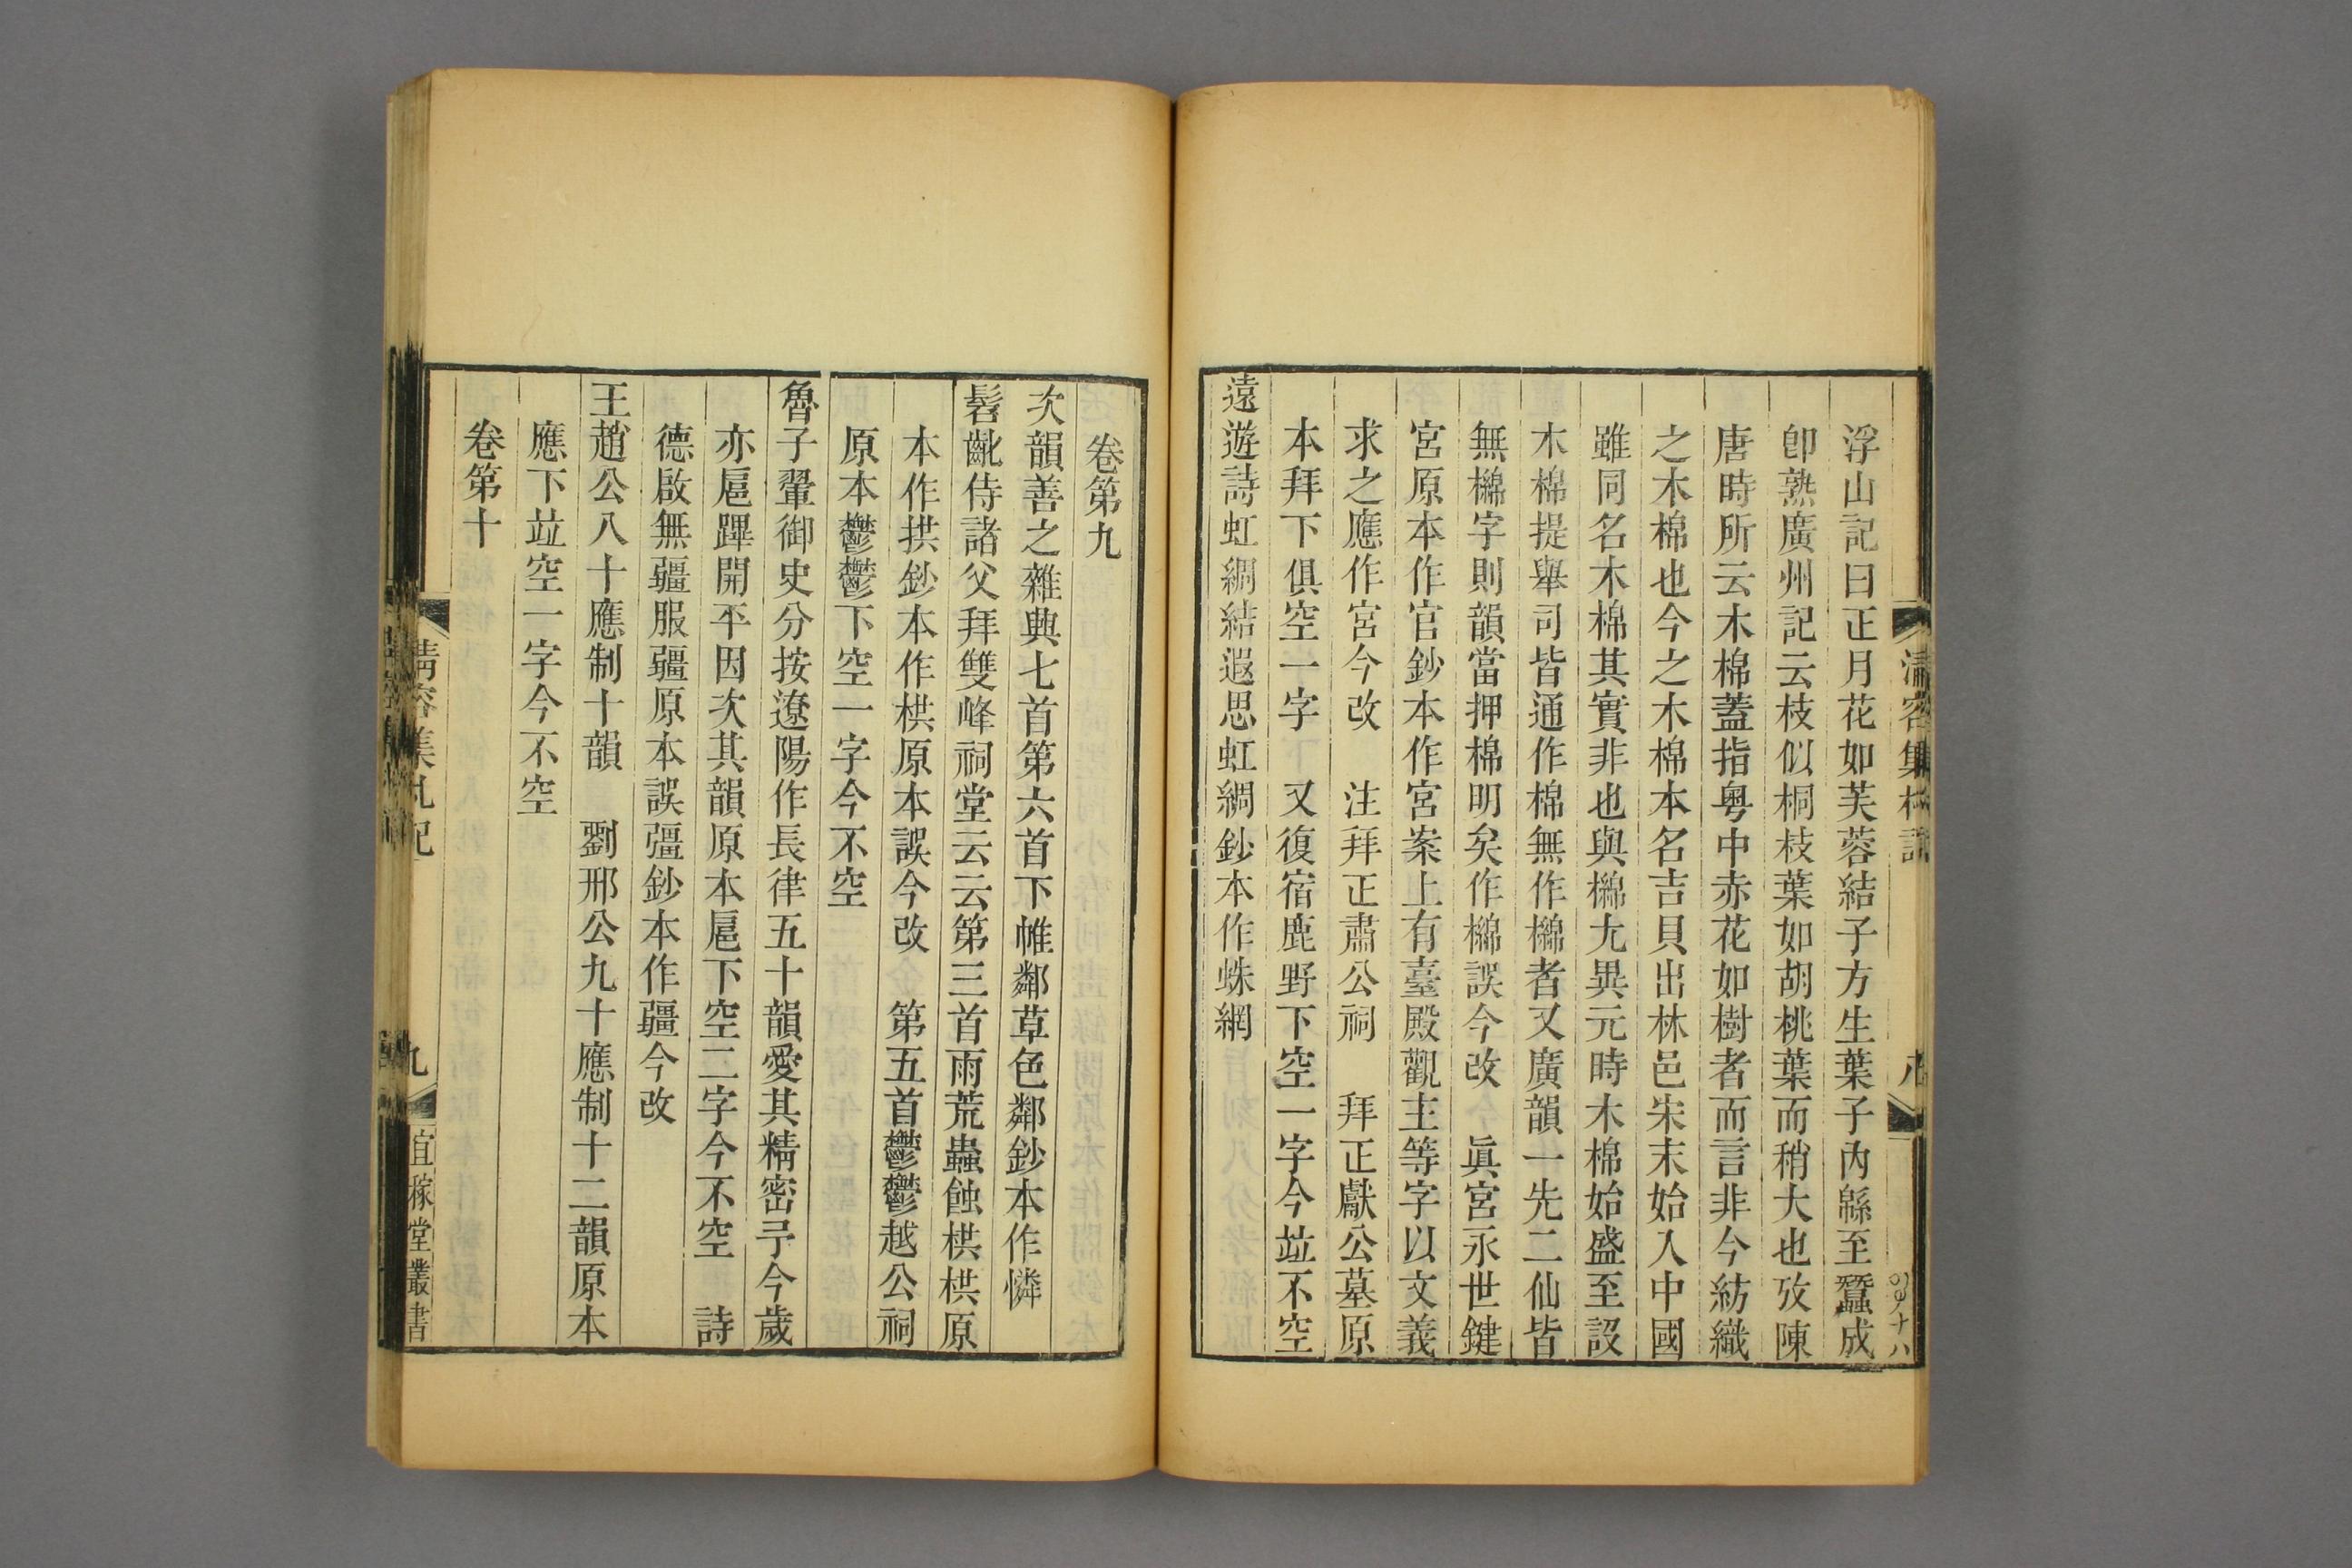 浮山記曰正月花如芙蓉結子方生葉子內緜至蠶成
卽熟廣州記云枝似桐枝葉如胡桃葉而稍大也攷陳
唐時所云木棉蓋指粤中赤花如樹者而言非今紡織
之木棉也今之木棉本名吉貝出林邑宋末始入中國
雖同名木棉其實非也與櫋尤異元時木棉始盛至設
木棉提舉司皆通作棉無作櫋者又廣韻一先二仙皆
無櫋字則韻當押棉明矣作櫋誤今改　眞宮永世鍵
宮原本作官鈔本作宮案上有臺殿觀主等字以文義
求之應作宮今改　注拜正肅公祠　拜正獻公墓原
本拜下俱空一字　又復宿鹿野下空一字今竝不空
遠遊詩虹綢結遐思虹綢鈔本作蛛網
清容集札記
八
卷第九
次韻善之雜興七首第六首下帷鄰草色鄰鈔本作憐
髫齔侍諸父拜雙峰祠堂云云第三首雨荒蟲蝕栱栱原
本作拱鈔本作栱原本誤今改　第五首鬱鬱越公祠
原本鬱鬱下空一字今不空
魯子翬御史分按遼陽作長律五十韻愛其精密予今歲
亦扈蹕開平因次其韻原本扈下空二字今不空　詩
德啟無疆服疆原本誤彊鈔本作疆今改
王趙公八十應制十韻　劉邢公九十應制十二韻原本
應下竝空一字今不空
卷第十
清容集札記
九
宜稼堂叢書